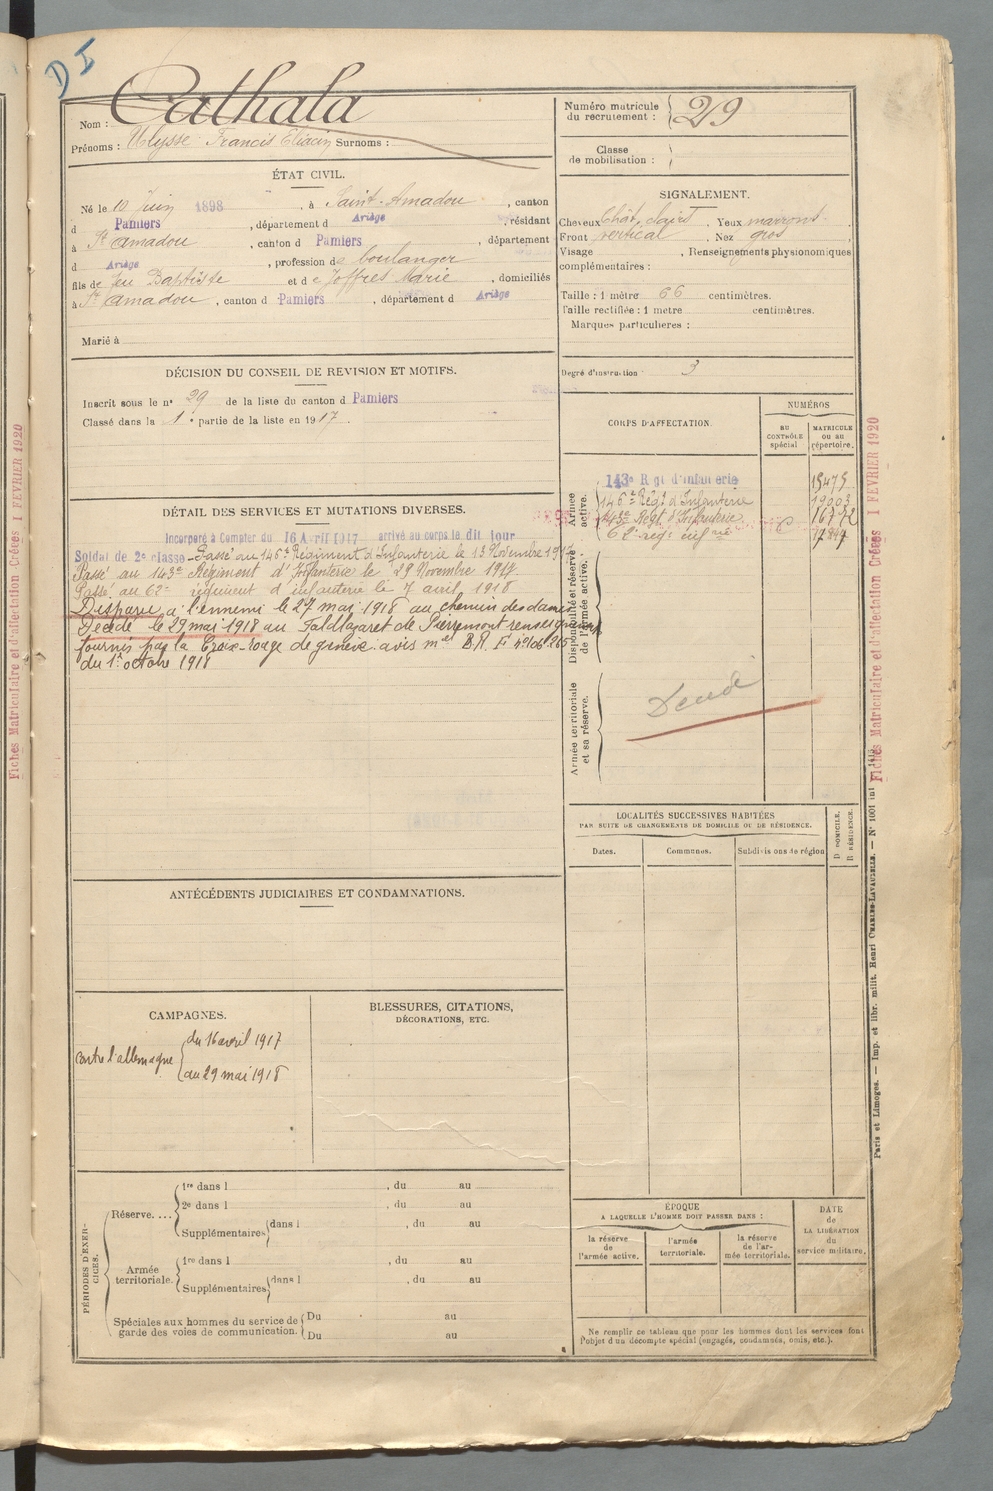 D I
Nom : Cathala
Prénoms : Ulysse Francis Eliacin Surnoms :
Numéro matricule du recrutement : 29
Classe de mobilisation :
ÉTAT CIVIL.
Né le 10 juin 1898, à Saint-Amadou, canton
d Pamiers, département d Ariège, résidant
à St Amadou, canton d Pamiers, département
d Ariège, profession de boulanger
fils de feu Baptiste et de Joffres Marie, domiciliés
à St Amadou, canton d Pamiers, département d Ariège
Marié à
SIGNALEMENT.
Cheveux Chât. clairs. Yeux marrons
Front vertical. Nez gros,
Visage, Renseignements physionomiques
complémentaires :
Taille : 1 mètre 66 centimètres.
Taille rectifiée : 1 metre centimètres.
Marques particulières :
Degré d'instruction 3
DÉCISION DU CONSEIL DE REVISION ET MOTIFS.
Inscrit sous le n° 29 de la liste du canton d Pamiers
Classé dans la 1e partie de la liste en 1917.
DÉTAIL DES SERVICES ET MUTATIONS DIVERSES.
Incorporé à Compter du 16 Avril 1917 arrivé au corps le dit jour
Soldat de 2e classe - Passé au 146e Régiment d'Infanterie le 13 Novembre 1917
Passé au 143e Régiment d'Infanterie le 29 Novembre 1917
Passé au 62e régiment d'infanterie le 7 avril 1918
Disparu à l'ennemi le 27 mai 1918 au chemin des dames
Décédé le 29 mai 1918 au Faldlazaret de Pierremont renseignements
fournis par la Croix-rouge de genève. avis mel B.R. F
du 1er octobre 1918
CORPS D'AFFECTATION.
NUMÉROS
AU CONTRÔLE spécial
MATRICULE ou au répertoire.
Armée active.
143e Rgt d'infanterie 15475
146e Régt d'Infanterie 19003
143e Régt d'Infanterie 16772
62e reg. infrie
Disponibilité et réserve de l'armée active.
Armée territoriale et sa réserve.
Décédé
LOCALITÉS SUCCESSIVES HABITÉES
PAR SUITE DE CHANGEMENTS DE DOMICILE OU DE RÉSIDENCE.
Dates. Communes. Subdivisions de région
D DOMICILE.
R RÉSIDENCE.
ANTÉCÉDENTS JUDICIAIRES ET CONDAMNATIONS.
CAMPAGNES.
contre l'allemagne
du 16 avril 1917
au 29 mai 1918
BLESSURES, CITATIONS,
DÉCORATIONS, ETC.
PÉRIODES D'EXERCICES.
Réserve....
1re dans l , du au
2e dans l , du au
Supplémentaires dans l , du au
Armée territoriale.
1re dans l , du au
Supplémentaires dans l , du au
Spéciales aux hommes du service de
garde des voies de communication.
Du au
Du au
ÉPOQUE
A LAQUELLE L'HOMME DOIT PASSER DANS :
la réserve de l'armée active.
l'armée territoriale.
la réserve de l'armée territoriale.
DATE de LA LIBÉRATION du service militaire.
Ne remplir ce tableau que pour les hommes dont les services font
l'objet d'un décompte spécial (engagés, condamnés, omis, etc.).
Fiches Matriculaire et d'affectation Créées 1 FEVRIER 1920
Fiches Matriculaire et d'affectation Créées 1 FEVRIER 1920
Paris et Limoges. — Imp. et libr. milit. Henri CHARLES-LAVAUZELLE. — N° 1001